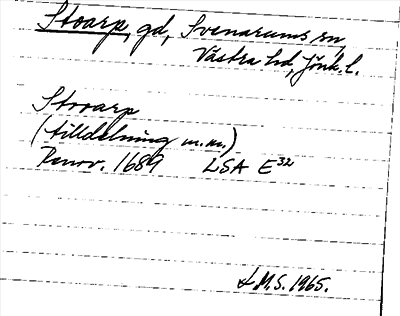 Stoarp, gd, Svenarums sn,
Västra hd, Jönk. l.
Stroarp
(tilldelning m.m.)
Renov. 1689 LSA E32
L M.S. 1965.